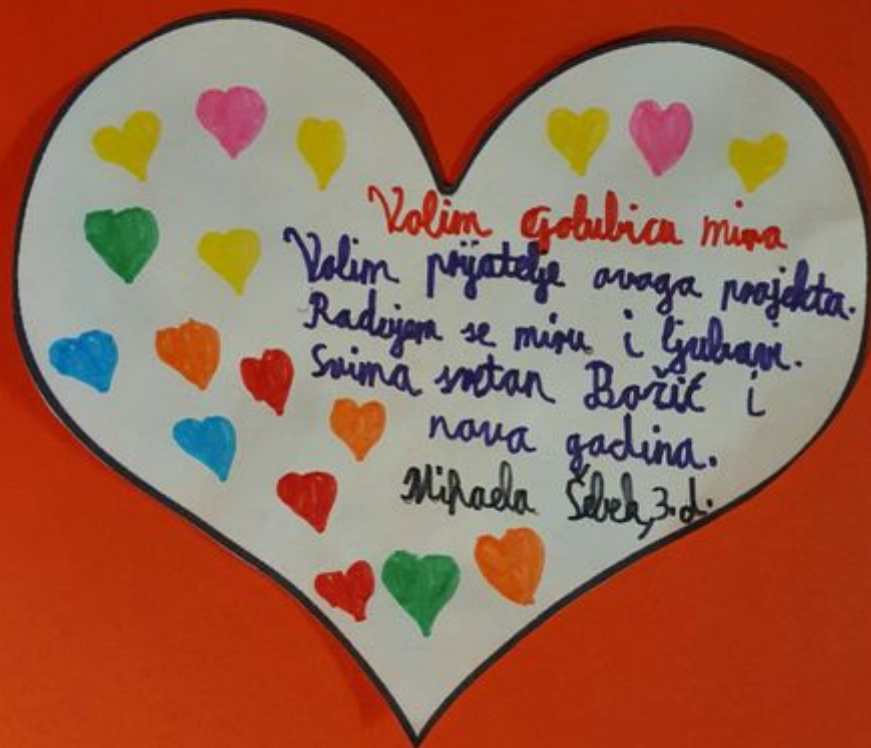 Volim Golubicu mira
Volim prijatelje ovaga projekta.
Radujem se miru i ljubavi.
Svima sretan Božić i
nova godina.
Mihaela Šebek, 3.d.